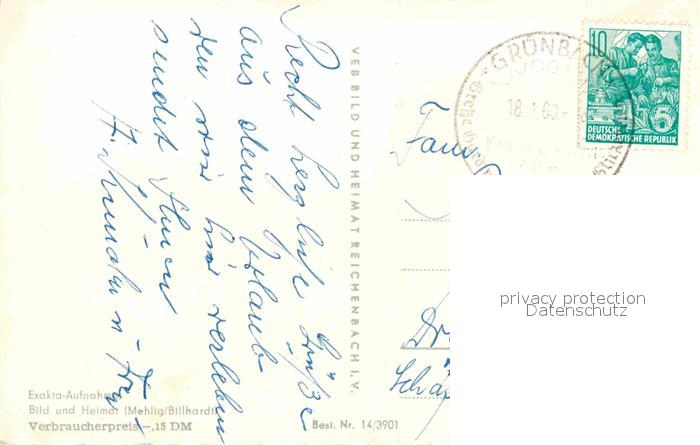 Recht herzliche Grüße
aus dem Urlaub
den wir hier verleben
sendet Ihnen
VEB BILD UND HEIMAT REICHENBACH I. V.
Exakta-Aufnahme
Bild und Heimat (Mehlig/Billhardt)
Verbraucherpreis -,15 DM
Best. Nr. 14/3901
GRÜNBACH
18.1.60.
10
DEUTSCHE
DEMOKRATISCHE REPUBLIK
Fam.
Dr
privacy protection
Datenschutz